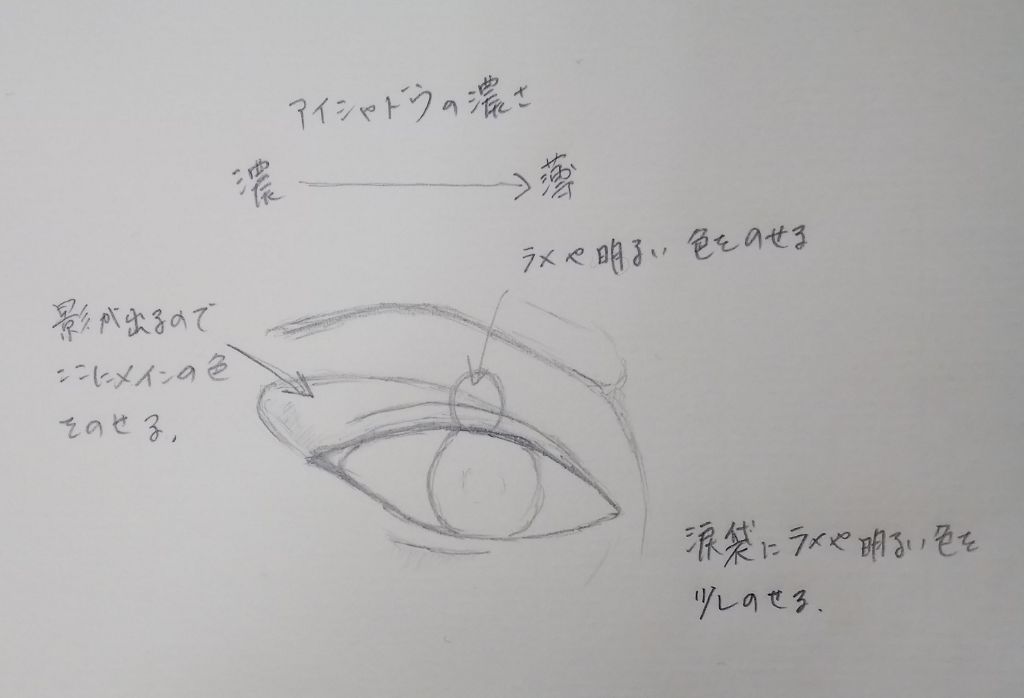 アイシャドウの濃さ
濃 → 薄
ラメや明るい色をのせる
影が出るので
ここにメインの色
をのせる.
涙袋にラメや明るい色を
少しのせる.